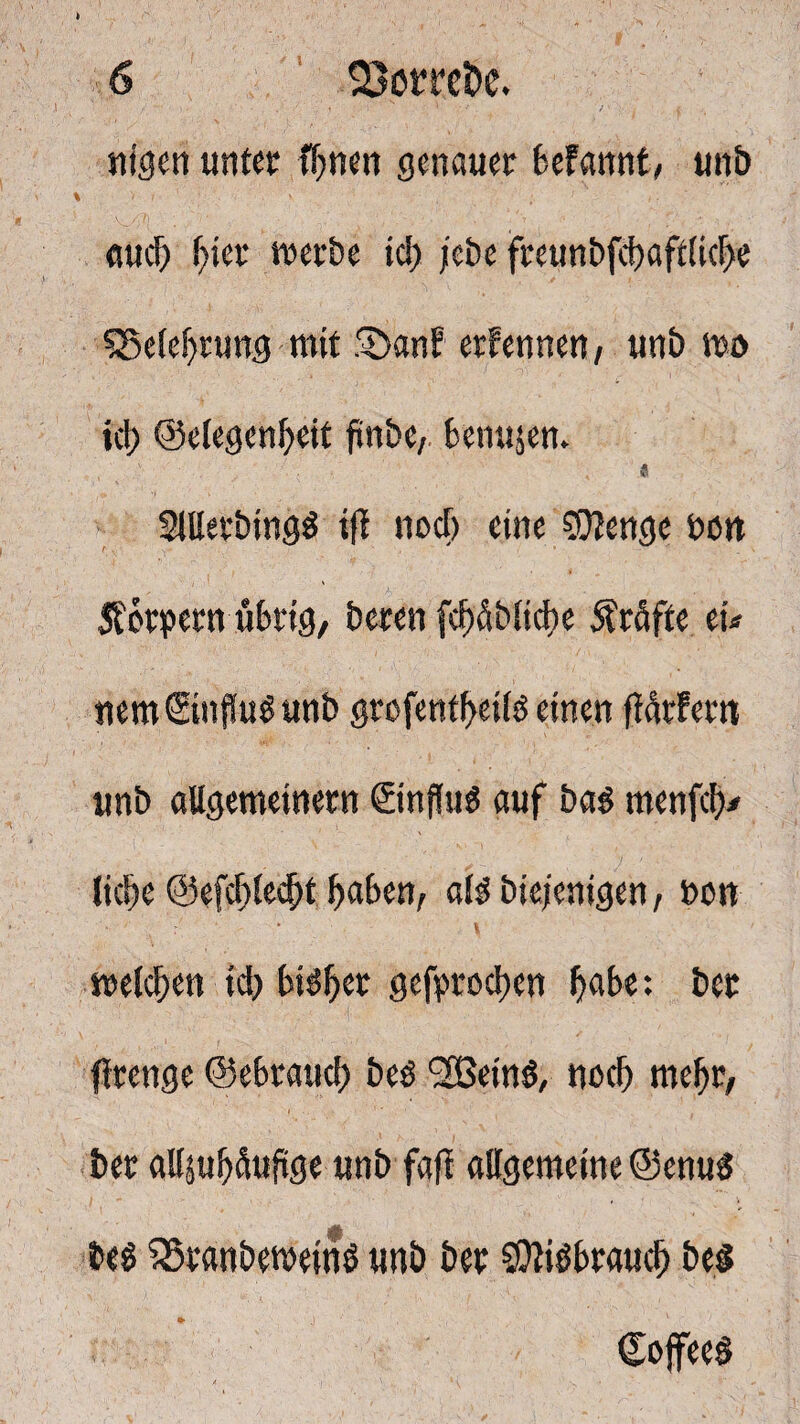 6 Vorrede.
nigen unter ihnen genauer bekannt, und
auch hier werde ich jede freundschaftliche
Belehrung mit Dank erkennen, und wo
ich Gelegenheit finde, benuzen.
Allerdings ist noch eine Menge von
Körpern übrig, deren schädliche Kräfte ei-
nem Einflus und grosentheils einen stärkern
und allgemeinern Einflus auf das mensch-
liche Geschlecht haben, als diejenigen, von
welchen ich bisher gesprochen habe: der
strenge Gebrauch des Weins, noch mehr,
der allzuhäufige und fast allgemeine Genus
des Brandeweins und der Misbrauch des
Coffees